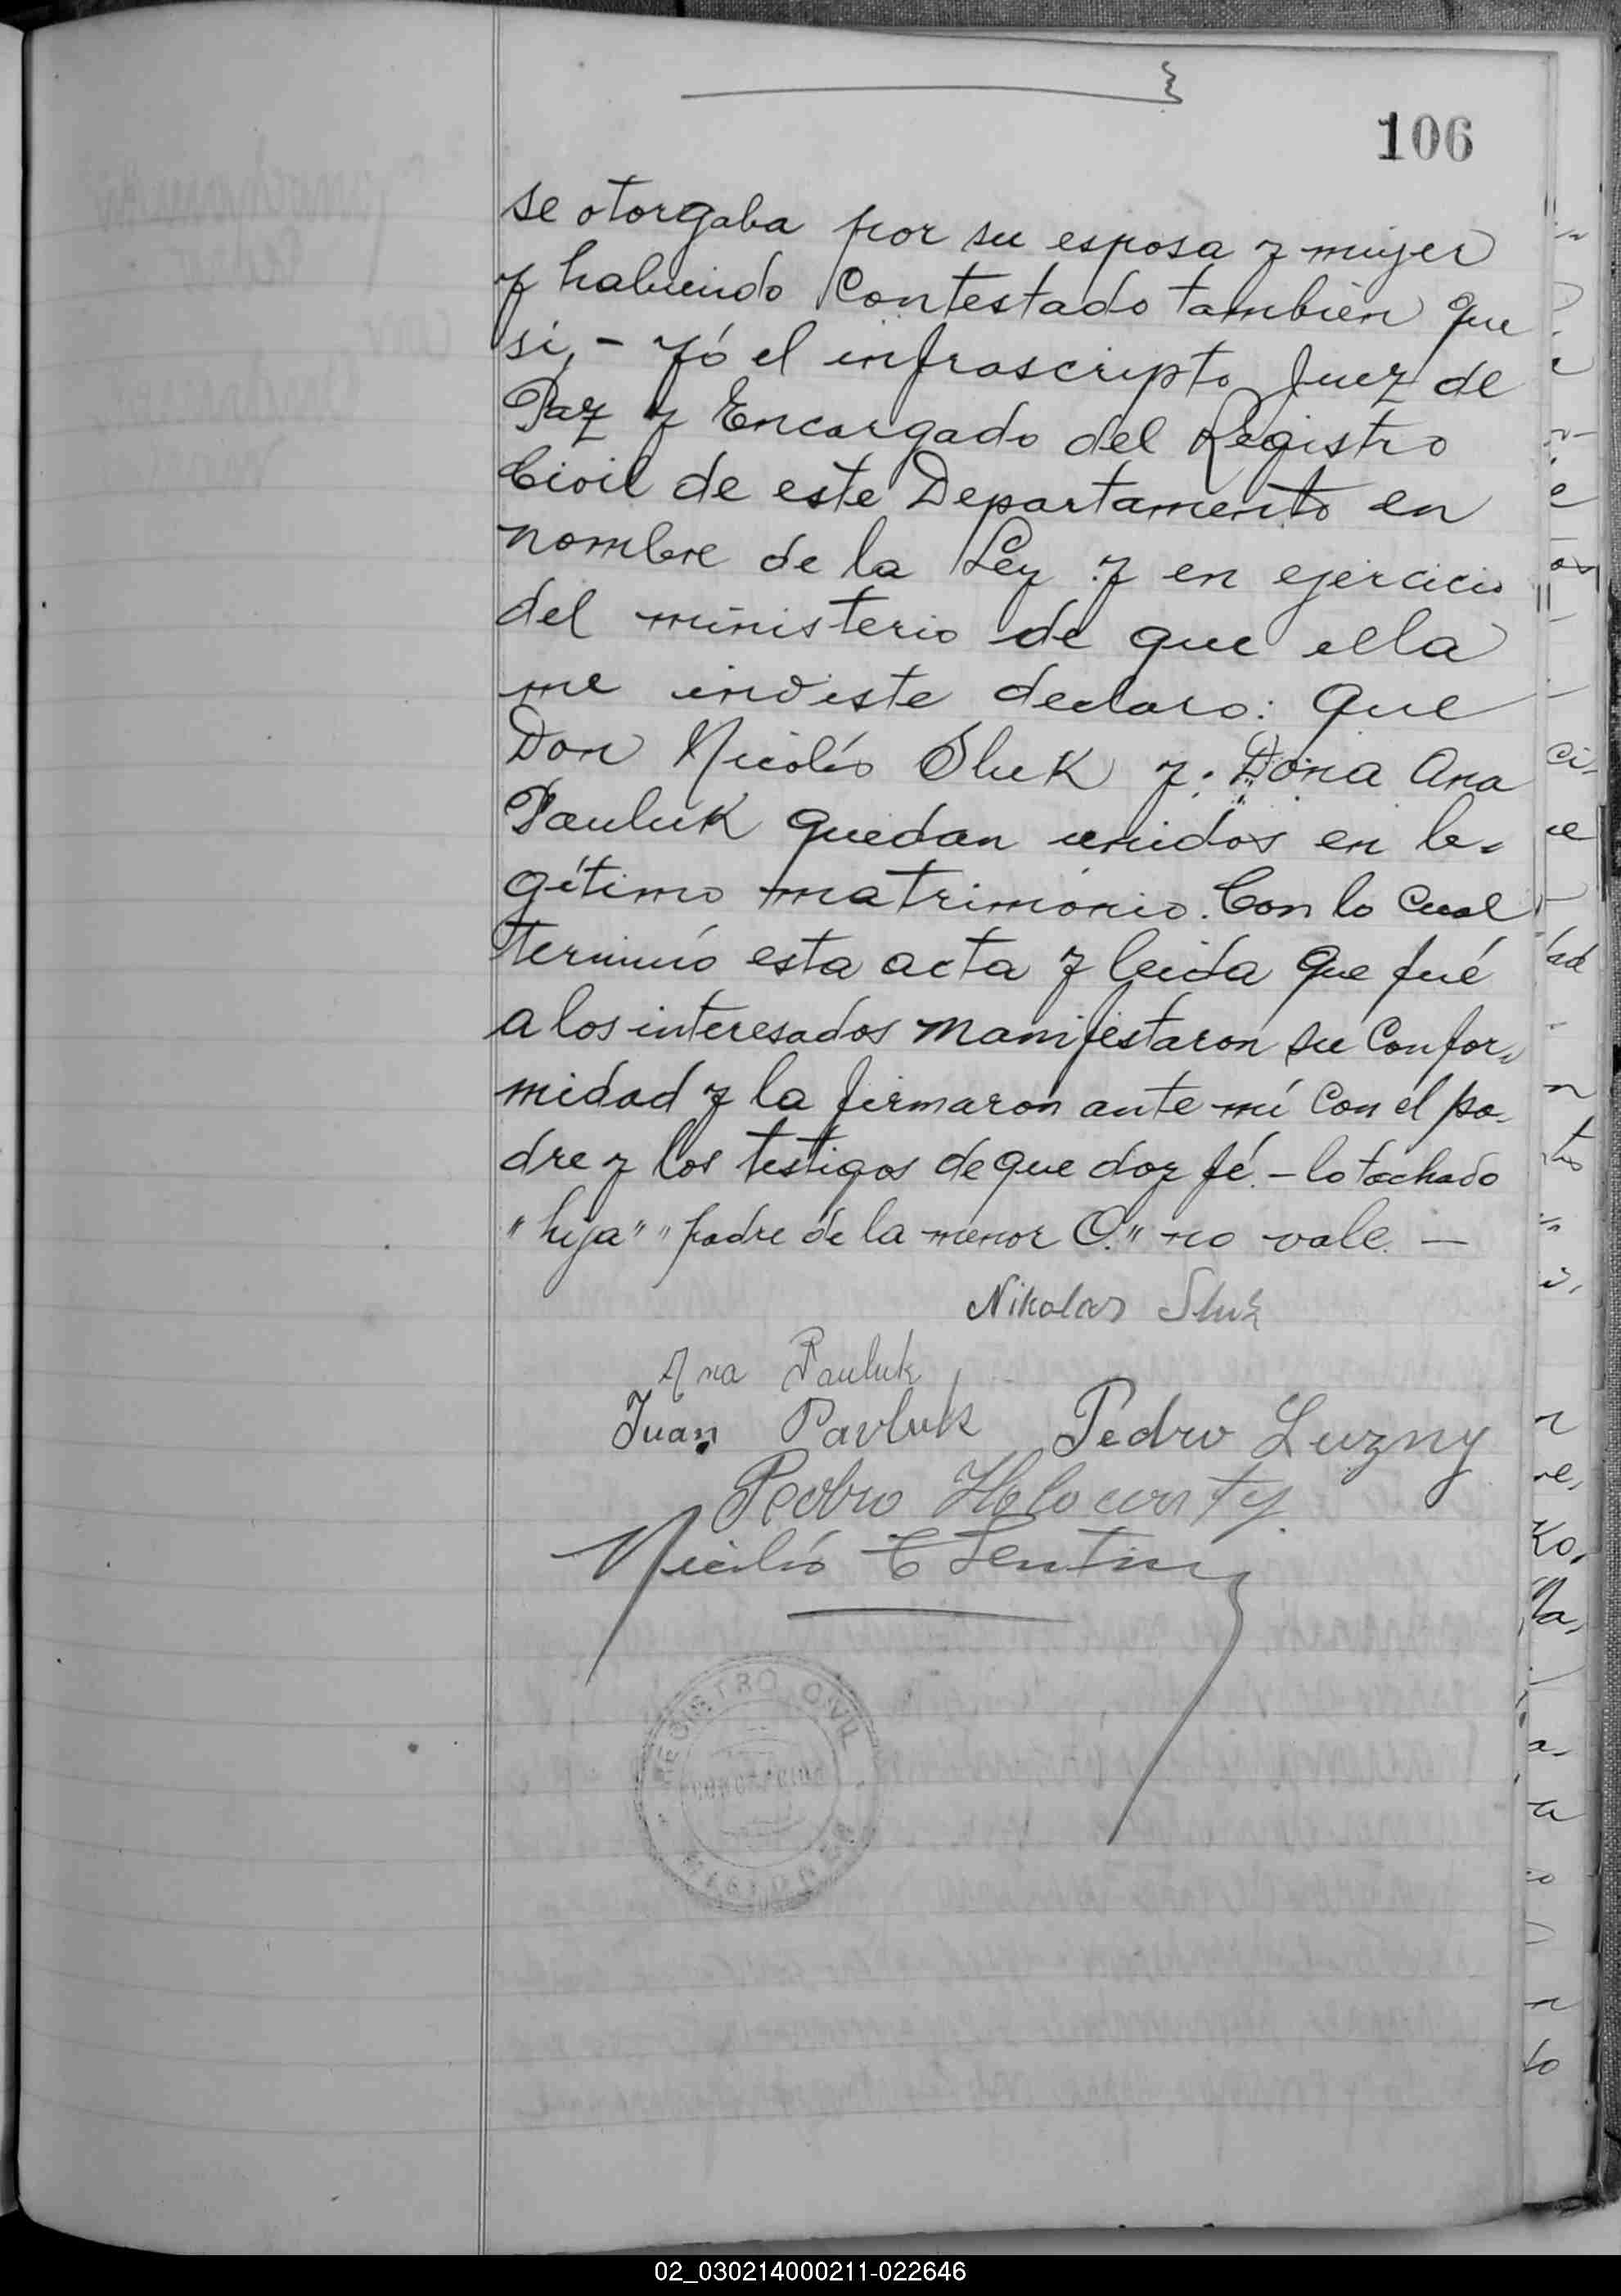 106
se otorgaba por su esposa y mujer
y habiendo Contestado también que
sí, - Yó el infrascripto Juez de
Paz y Encargado del Registro
Civil de este Departamento en
nombre de la Ley y en ejercicio
del ministerio de que ella
me inviste declaro: que
Don Nicolás Sluk y Doña Ana
Pauluk quedan unidos en le-
gítimo matrimonio. Con lo cual
terminó esta acta y leida que fué
a los interesados manifestaron su Confor-
midad y la firmaron ante mí Con el pa-
dre y los testigos de que doy fé. - lo tachado
"hija" "padre de la menor O." no vale. —
Nikolas Sluk
Ana Pauluk
Juan Pavluk Pedro Luzny
Pedro
Nicolás
REGISTRO CIVIL
CONCEPCION
MISIONES
02_030214000211-022646